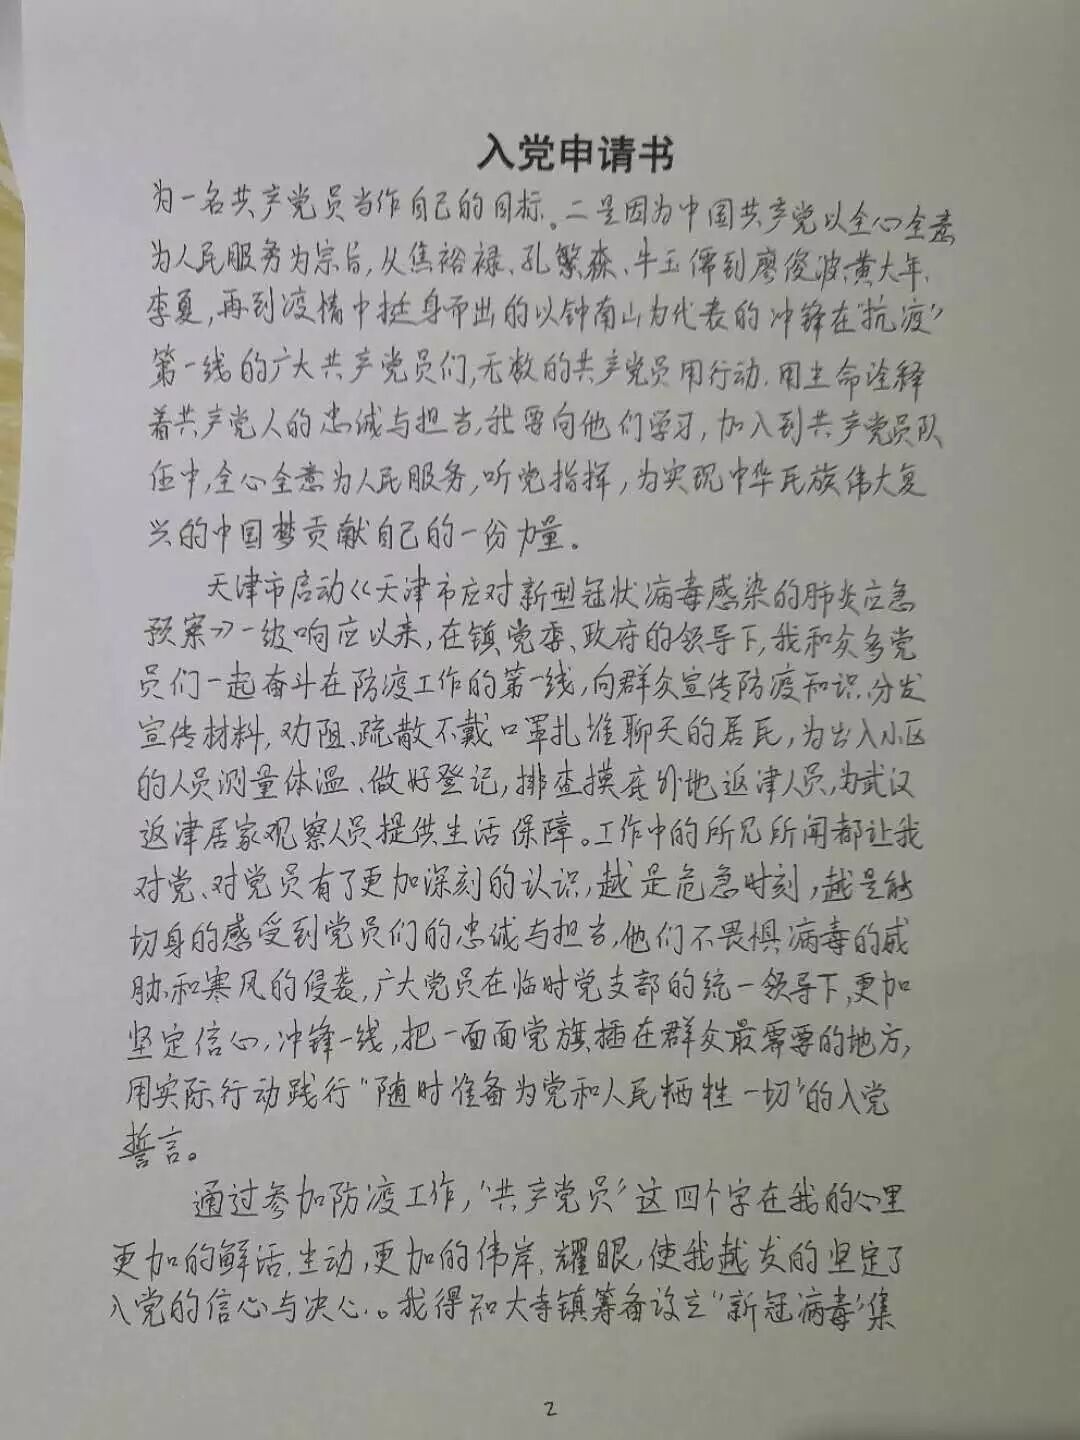 入党申请书
为一名共产党员当作自己的目标。二是因为中国共产党以全心全意
为人民服务为宗旨,从焦裕禄、孔繁森、牛玉儒到廖俊波、黄大年、
李夏,再到疫情中挺身而出的以钟南山为代表的冲锋在“抗疫”
第一线的广大共产党员们,无数的共产党员用行动、用生命诠释
着共产党人的忠诚与担当,我要向他们学习,加入到共产党员队
伍中,全心全意为人民服务,听党指挥,为实现中华民族伟大复
兴的中国梦贡献自己的一份力量。
天津市启动《天津市应对新型冠状病毒感染的肺炎应急
预案》一级响应以来,在镇党委、政府的领导下,我和众多党
员们一起奋斗在防疫工作的第一线,向群众宣传防疫知识、分发
宣传材料,劝阻、疏散不戴口罩扎堆聊天的居民,为出入小区
的人员测量体温、做好登记,排查摸底外地返津人员,为武汉
返津居家观察人员提供生活保障。工作中的所见所闻都让我
对党、对党员有了更加深刻的认识,越是危急时刻,越是能
切身的感受到党员们的忠诚与担当,他们不畏惧病毒的威
胁和寒风的侵袭,广大党员在临时党支部的统一领导下,更加
坚定信心,冲锋一线,把一面面党旗插在群众最需要的地方,
用实际行动践行“随时准备为党和人民牺牲一切”的入党
誓言。
通过参加防疫工作,“共产党员”这四个字在我的心里
更加的鲜活、生动,更加的伟岸、耀眼,使我越发的坚定了
入党的信心与决心。我得知大寺镇筹备设立“新冠病毒”集
2